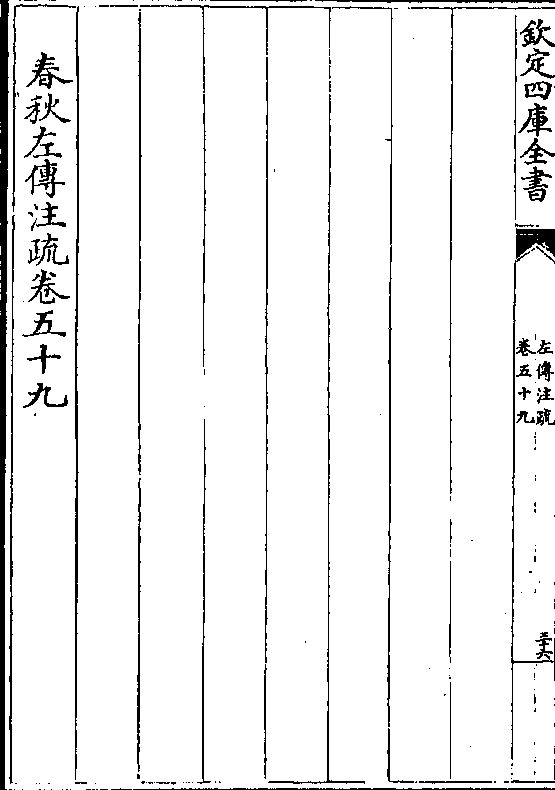 欽定四庫全書
左傳注疏
卷五十九
三十六
春秋左傳注疏卷五十九